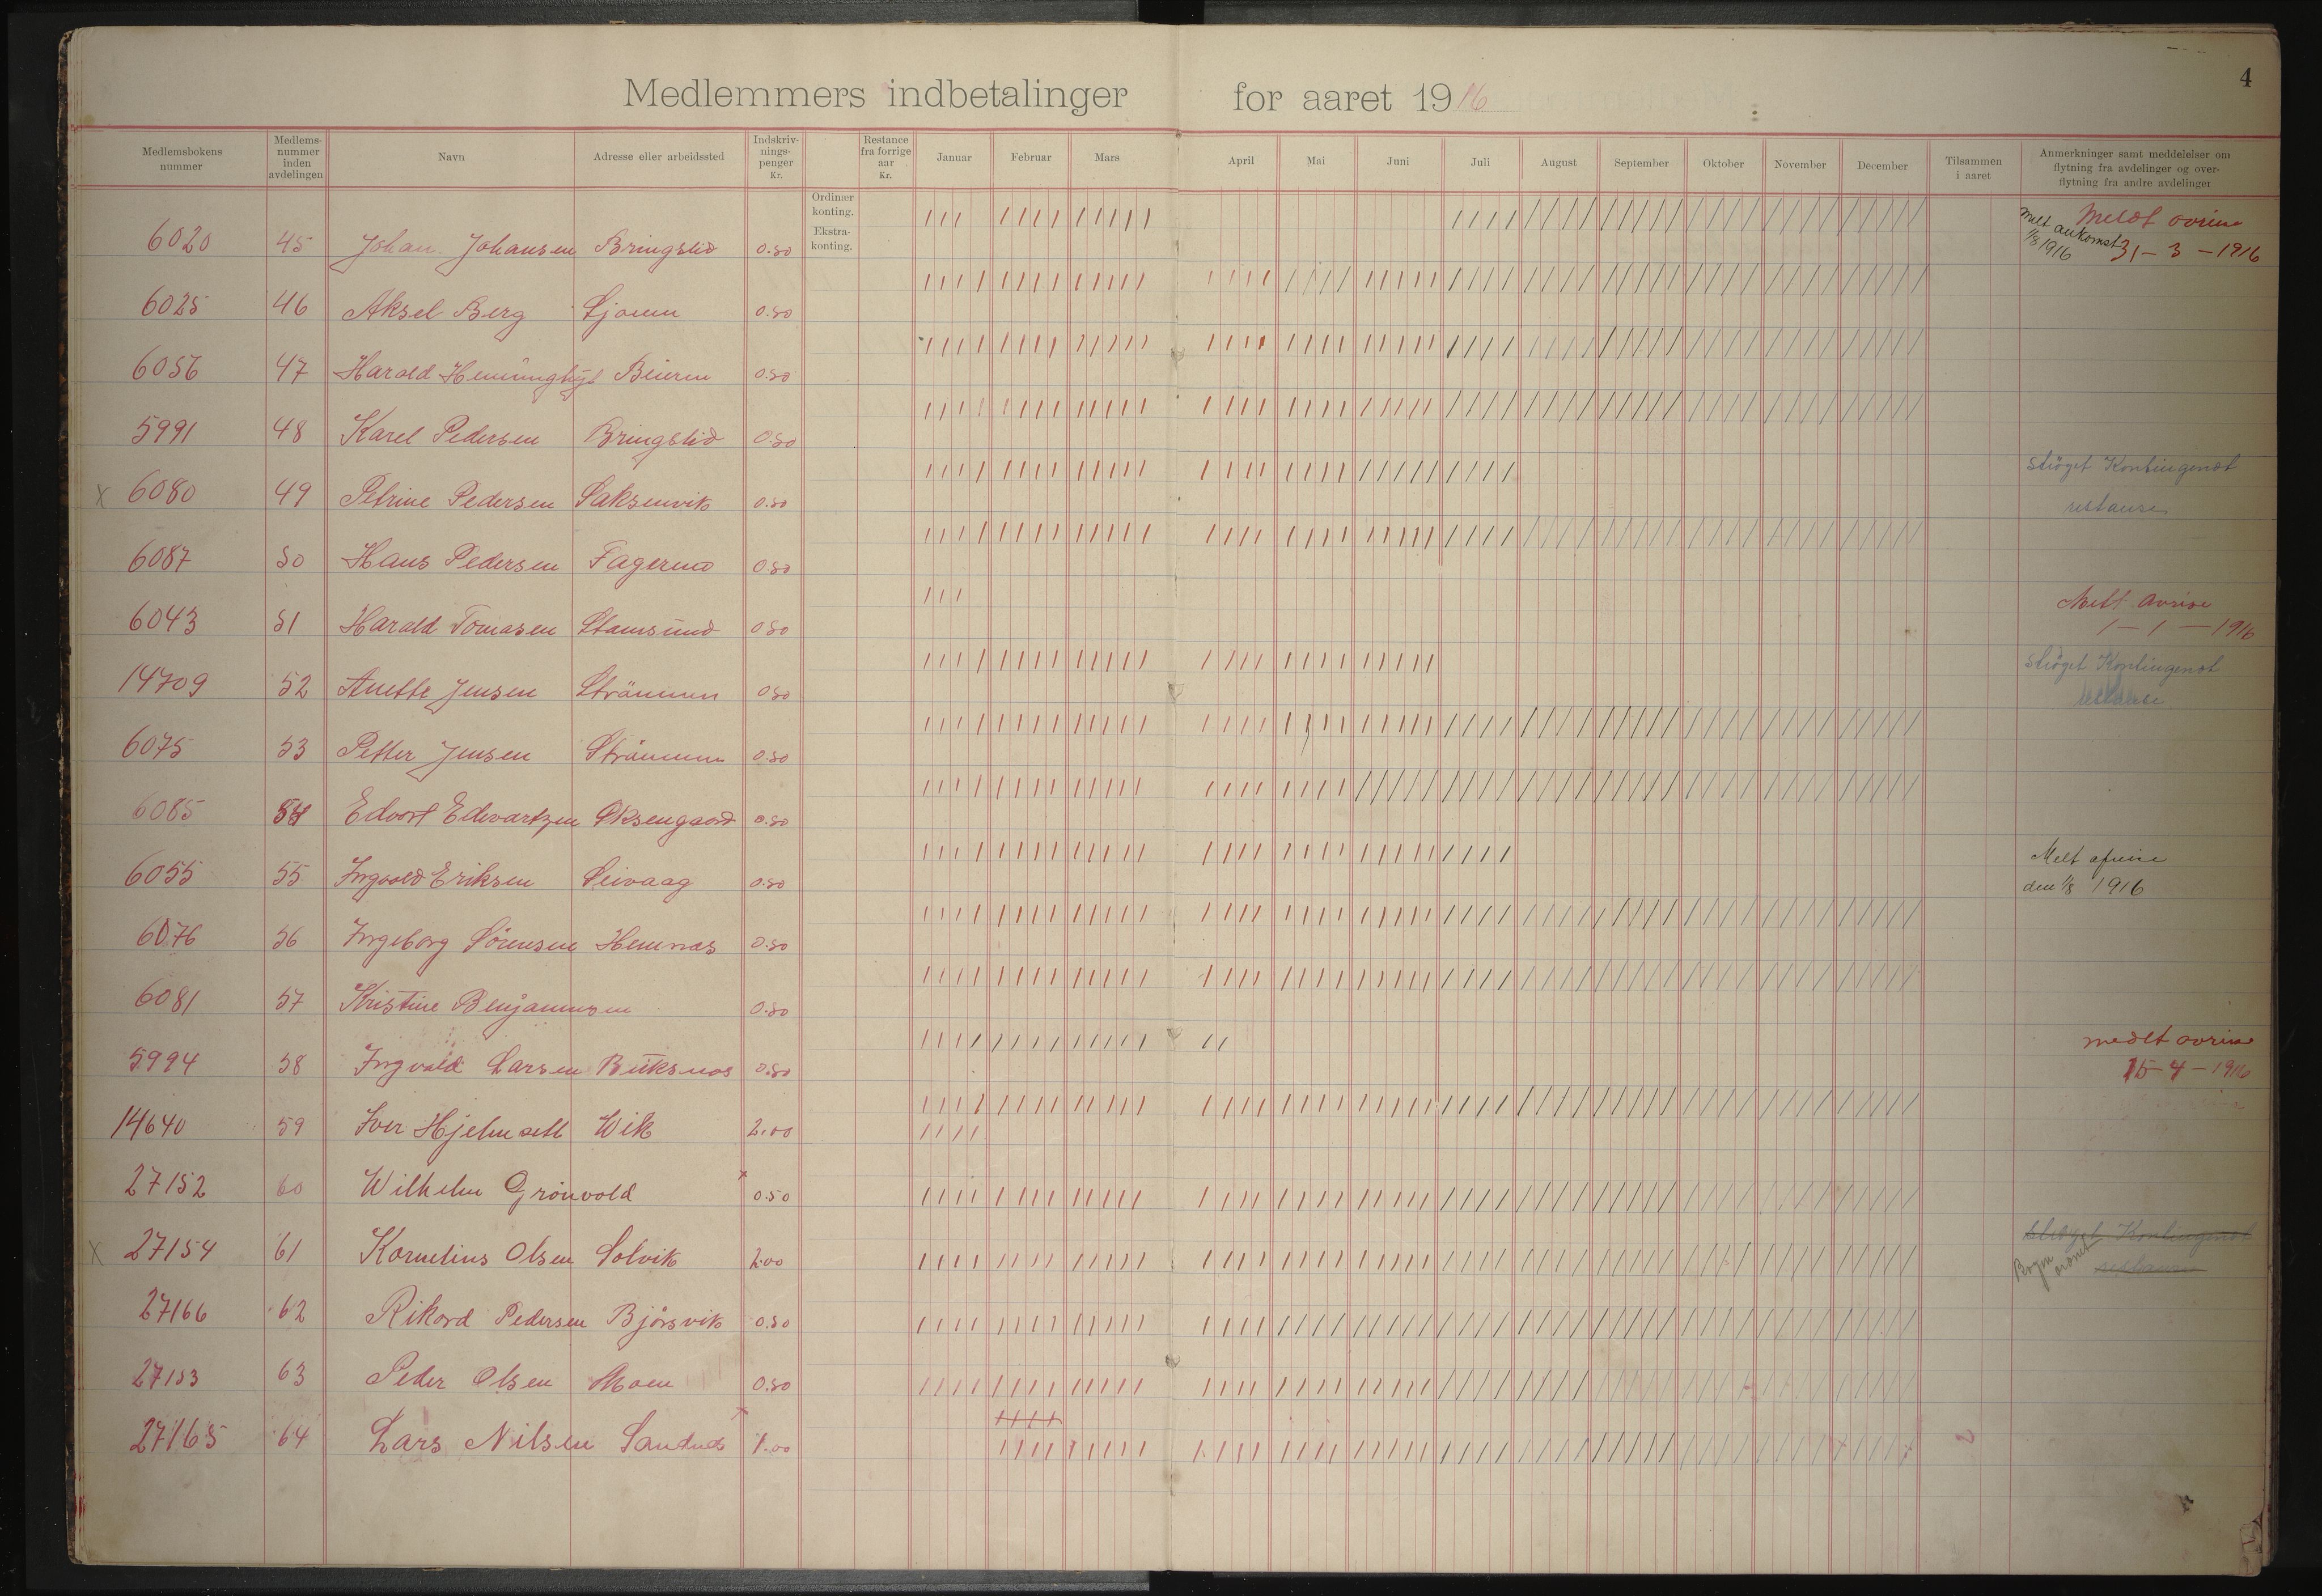 4
Medlemmers indbetalinger for aaret 1916
Medlemsbokens nummer
Medlems-nummer inden avdelingen
Navn
Adresse eller arbeidssted
Indskriv-nings-penger Kr.
Restance fra forrige aar Kr.
Januar Februar Mars April Mai Juni Juli August September Oktober November December
Tilsammen i aaret
Anmerkninger samt meddelelser om flytning fra avdelinger og over-flytning fra andre avdelinger
Ordinær konting.
Ekstra-konting.
6020 45 Johan Johansen Bringslid 0.50 Melt ankomst 1/8 1916 Meldt 31-3-1916
6025 46 Aksel Berg 0.50
6056 47 Harald Beiern 0.50
5991 48 Karel Pedersen Bringslid 0.50
x 6080 49 Petrine Pedersen Saksenvik 0.50 Kontingenst
6087 50 Hans Pedersen Fagermo 0.50
6043 51 Harald Tomasen Stamsund 0.50 Melt 1-1-1916
14709 52 Anette Jensen Strämmen 0.50 Kontingenst
6075 53 Petter Jensen Strämmen 0.50
6085 54 Edvart Edvartzen Oksengaard 0.50
6055 55 Ingvald Eriksen Seivaag 0.50 Melt
den 1/8 1916
6076 56 Ingeborg Sörensen Hemnas 0.50
6081 57 Kristine Benjaminsen 0.50
5994 58 Ingvald Larsen Buksnas 0.50 15-4-1916
14640 59 Iver Wik 2.00
27152 60 Wilhelm Grönvold x 0.50
x 27154 61 Kornelius Olsen Solvik 2.00 Kontingenst
27166 62 Rikard Pedersen Björsvik 0.50
27153 63 Peder Olsen Moen 0.50
27165 64 Lars Nilsen x 1.00